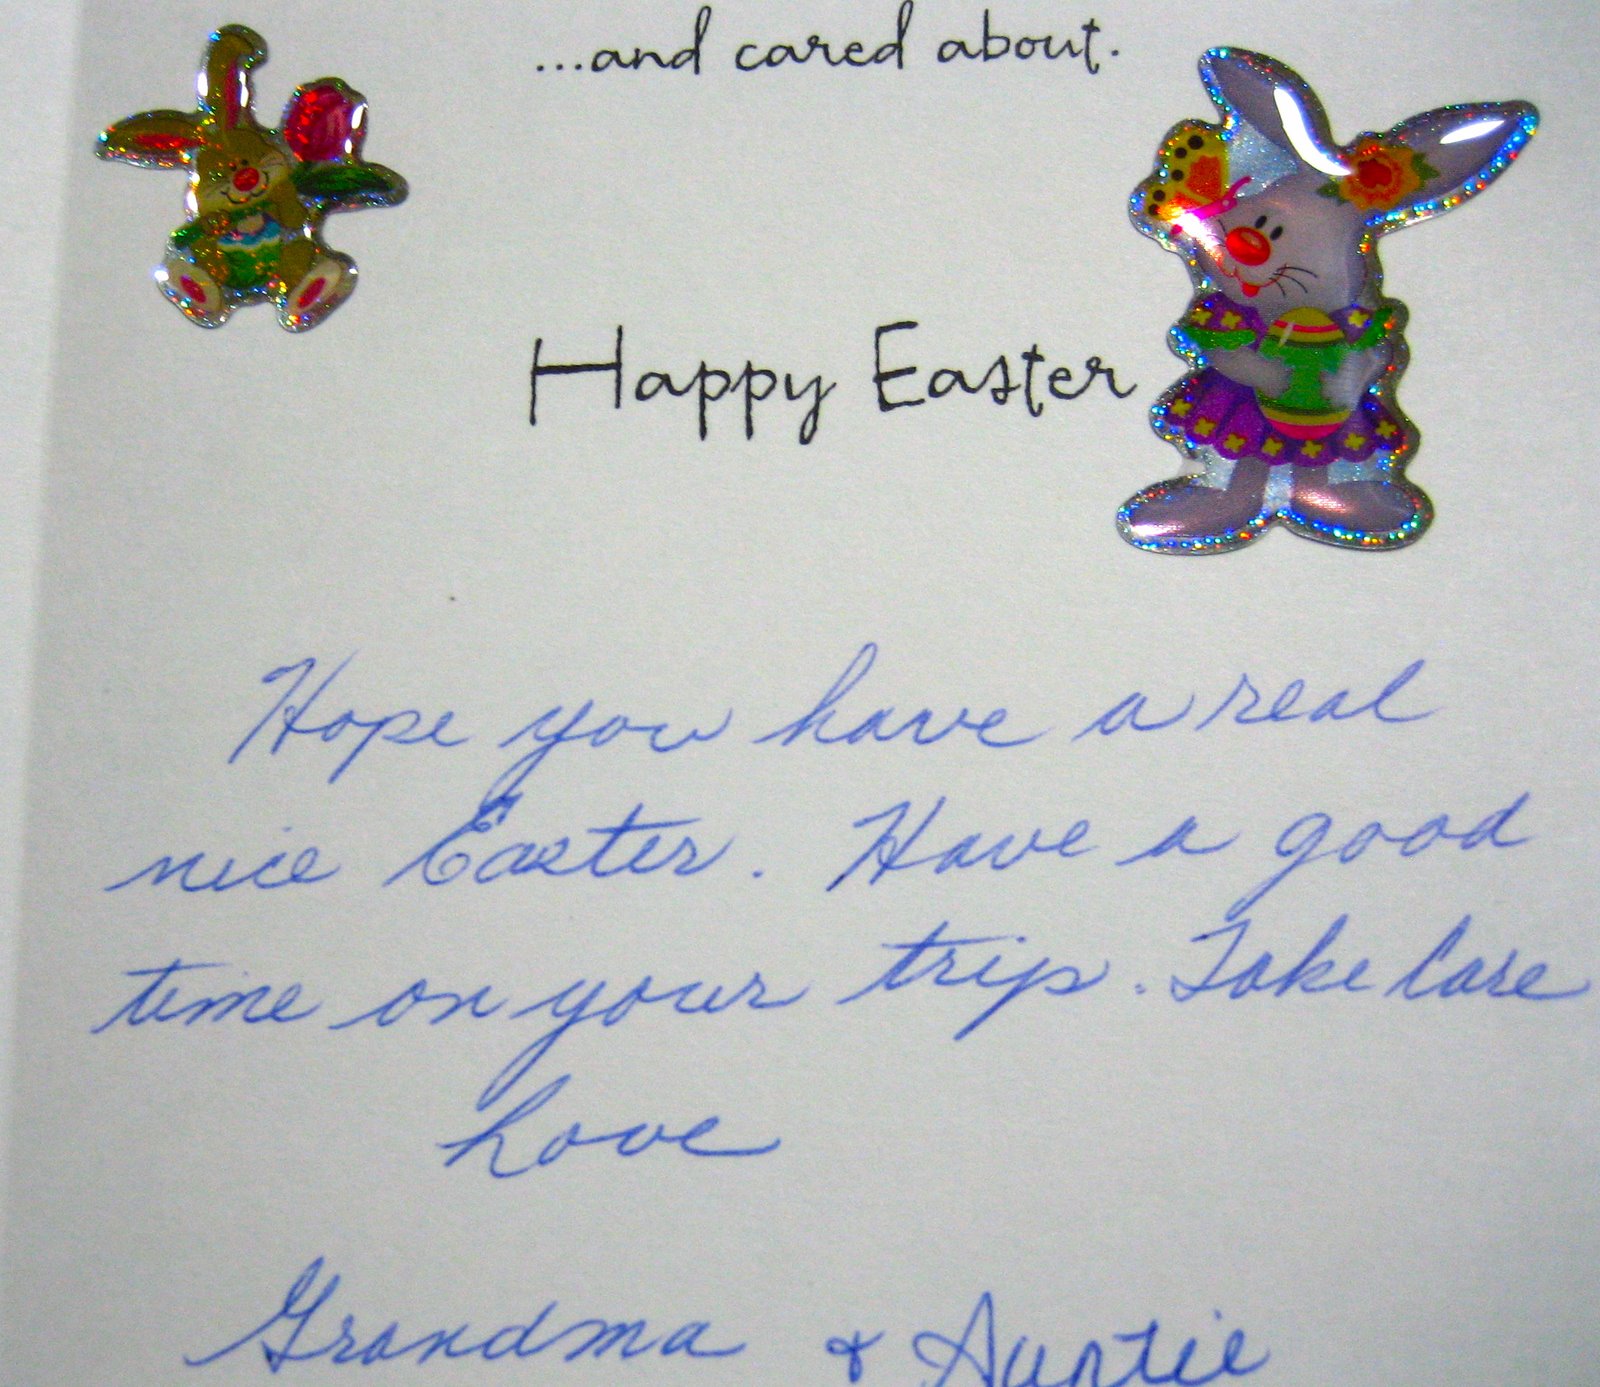 ...and cared about.
Happy Easter
Hope you have a real
nice Easter. Have a good
time on your trip. Take Care
Love
Grandma & Auntie